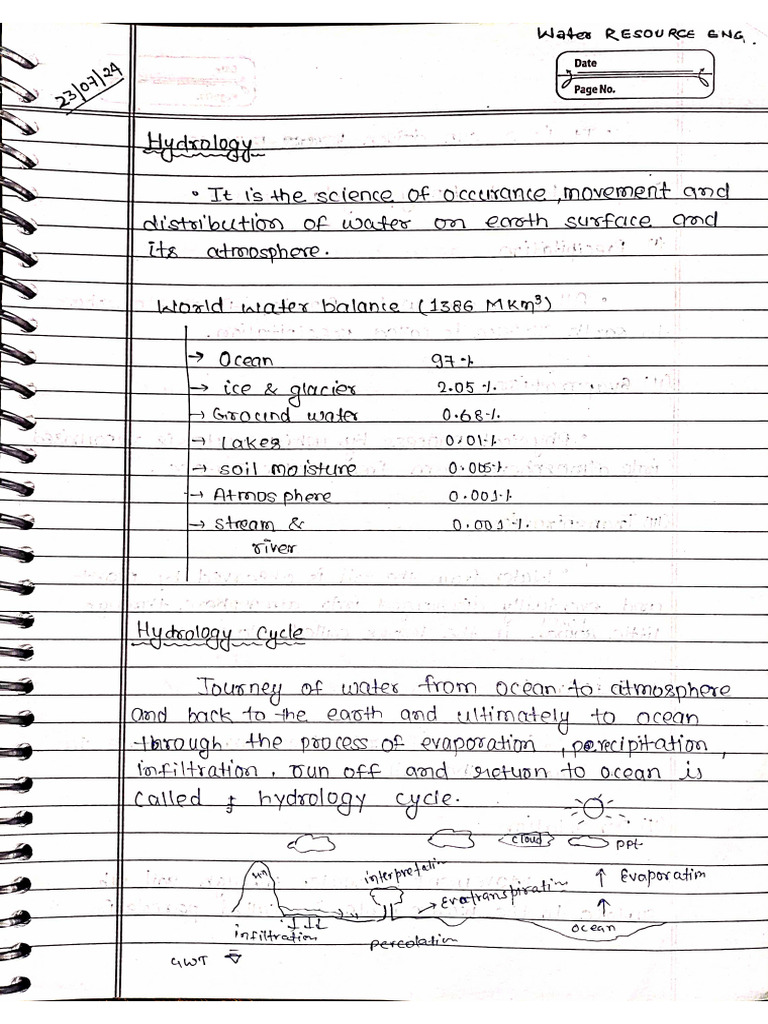 Water RESOURCE ENG.
Date
Page No.
23/07/24
Hydrology
• It is the science of occurance, movement and
distribution of water on earth surface and
its atmosphere.
World water balance (1386 MKm³)
→ Ocean 97%
→ ice & glacier 2.05%
→ Ground water 0.68%
→ Lakes 0.01%
→ soil moisture 0.005%
→ Atmosphere 0.001%
→ stream & 0.001%
river
Hydrology cycle
Journey of water from ocean to atmosphere
and back to the earth and ultimately to ocean
through the process of evaporation, perecipitation,
infiltration, run off and return to ocean is
called hydrology cycle.
cloud
ppt
interpretatin
→ Evatranspiratin
↑ Evaporatim
infiltration
percolatim
ocean
GWT